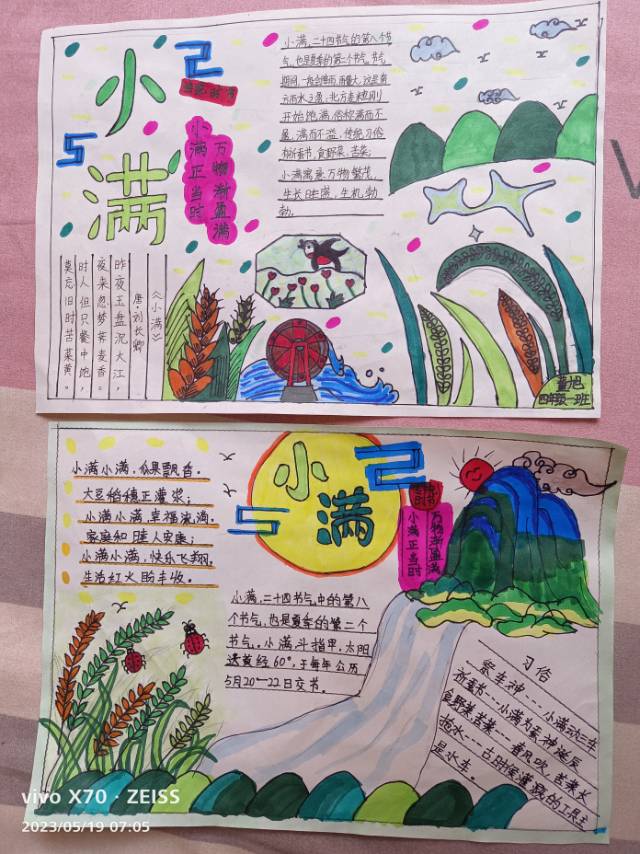 小
满
小满,二十四节气的第八个节
气,也是夏季的第二个节气,节气
开始饱满,俗称满而不
盈,满而不溢,传统习俗
有祈蚕节,食野菜,苦菜,
小满寓意万物繁茂,
生长旺盛,生机勃
勃。
万物渐盈满
小满正当时
《小满》
唐 刘长卿
昨夜玉盘沉大江,
夜来忽梦荠麦香。
时人但只餐中饱,
莫忘旧时苦菜黄。
四年级一班
小满
小满小满,瓜果飘香。
大豆稻穗正灌浆;
小满小满,幸福流淌,
家庭和睦人安康;
小满小满,快乐飞翔,
生活红火盼丰收。
万物渐盈满
小满正当时
小满,二十四节气中的第八
个节气,也是夏季的第二个
节气。小满斗指甲,太阳
达黄经60°,于每年公历
5月20~22日交节。
习俗
祭车神---小满动三车
祈蚕节---小满为蚕神诞辰
食野菜苦菜---春风吹,苦菜长
抢水---古时候灌溉的工具主
是水车。
vivo X70 · ZEISS
2023/05/19 07:05